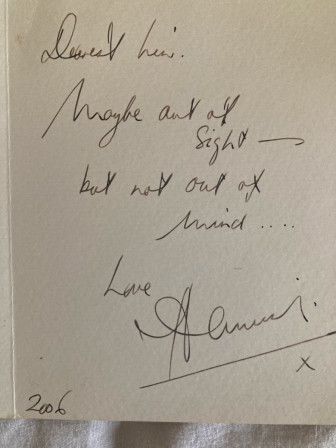 Dearest
Maybe out of
Sight —
but not out of
mind ....
Love
x
2006